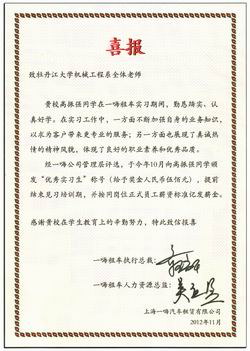 喜报
致牡丹江大学机械工程系全体老师
贵校高振强同学在一嗨租车实习期间，勤恳踏实、认
真好学。在实习工作中，一方面不断加强自身的业务知识，
以求为客户带来更专业的服务；另一方面也展现了真诚热
情的精神风貌，体现了良好的职业素养和优秀品质。
经一嗨公司管理层评选，于今年10月向高振强同学颁
发“优秀实习生”称号（给予奖金人民币伍佰元），提前
结束见习培训期，并按同岗位正式员工薪资标准记发薪金。
感谢贵校在学生教育上的辛勤努力，特此致信报喜
一嗨租车执行总裁：
一嗨租车人力资源总监：
上海一嗨汽车租赁有限公司
2012年11月